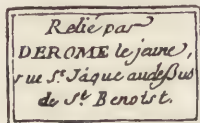 Relié par
DEROME le jeune,
rue St. Jáque audeßus
de St. Benoist.